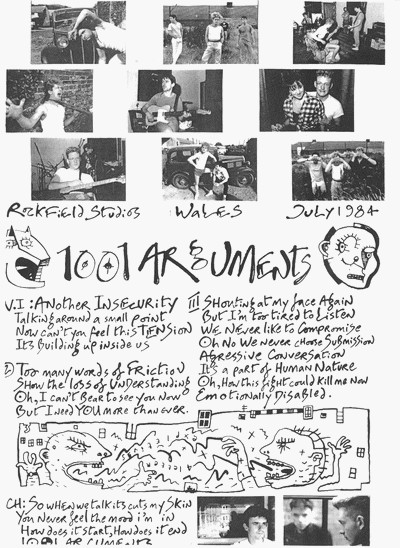 Rockfield Studios Wales July 1984
1001 Arguments
V.I: Another Insecurity
Talking around a small point
Now can't you feel this Tension
It's building up inside us
2) Too many words of Friction
Show the loss of Understanding
Oh, I can't bear to see you Now
But I need YOU more than ever.
III Shouting at my face Again
But I'm too tired to Listen
We Never like to Compromise
Oh No We Never choose Submission
Agressive Conversation
It's a part of Human Nature
Oh, How this fight could kill me Now
Emotionally Disabled.
CH: So when we talk it's cuts my Skin
You Never feel the mood i'm in
How does it start, How does it end
1001 Arguments